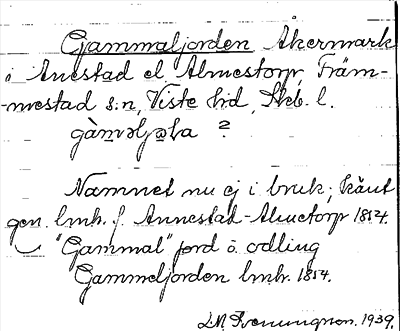 Gammaljorden Åkermark
i Anestad el. Almestorp, Främ-
-mestad s:n, Viste hd, Skb. l.
gàməljɷɷa ?
Namnet nu ej i bruk; känt
gen. lmh. f. Annestad-Almetorp 1854.
"Gammal" jord o. odling
Gammeljorden lmh. 1854.
1939.